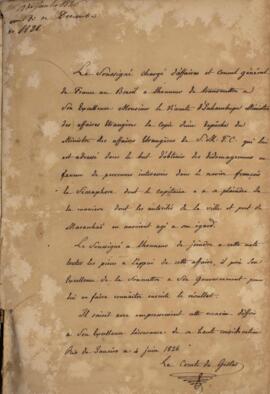 Le Soussigné chargé d'affaires et Consul général
de France au Brésil a l'honneur de transmettre à
Son Excellence Monsieur le Vicomte d'Inhambupe Ministre
des affaires Etrangères la Copie d'une dépêche du
Ministre des affaires Etrangères de S. M. T. C. qui lui
est adressée dans le but d'obtenir des dédommagemens en
faveur de personnes intéressées dans le navire français
le Télégraphe dont le Capitaine a à se plaindre de
la manière dont les autorités de la ville et port de
Maranhaõ en auraient agi à son égard.
Le Soussigné a l'honneur de joindre à cette note
toutes les pièces à l'appui de cette affaire, il prie Son
Excellence de la Soumettre à Son Gouvernement pour
lui en faire connaître ensuite le résultat.
Il saisit avec empressement cette occasion d'offrir
à Son Excellence l'assurance de sa haute considération
Rio de Janeiro ce 4 juin 1826
Le Comte de Gestas